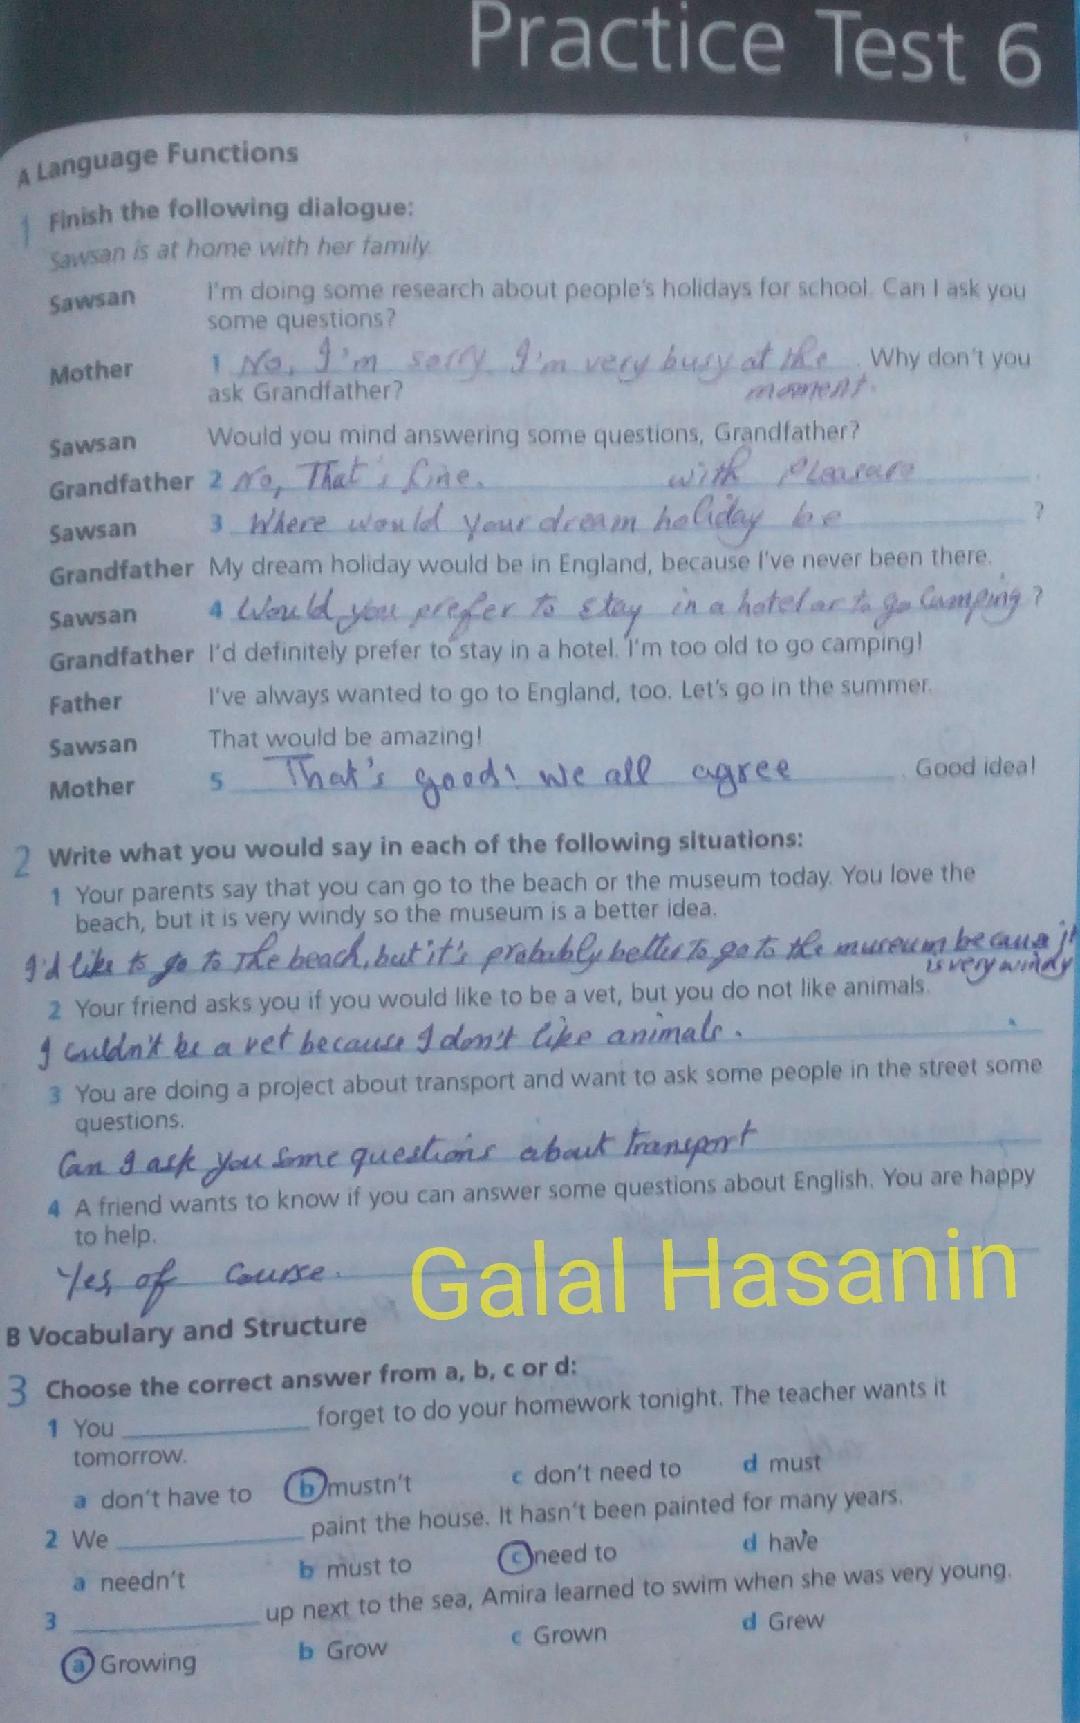 Practice Test 6
A Language Functions
1 Finish the following dialogue:
Sawsan is at home with her family.
Sawsan I'm doing some research about people's holidays for school. Can I ask you
some questions?
Mother 1 No, I'm sorry I'm very busy at the . Why don't you
ask Grandfather? moment.
Sawsan Would you mind answering some questions, Grandfather?
Grandfather 2 No, That's fine. with pleasure .
Sawsan 3 Where would your dream holiday be ?
Grandfather My dream holiday would be in England, because I've never been there.
Sawsan 4 Would you prefer to stay in a hotel or to go camping ?
Grandfather I'd definitely prefer to stay in a hotel. I'm too old to go camping!
Father I've always wanted to go to England, too. Let's go in the summer.
Sawsan That would be amazing!
Mother 5 That's good! we all agree . Good idea!
2 Write what you would say in each of the following situations:
1 Your parents say that you can go to the beach or the museum today. You love the
beach, but it is very windy so the museum is a better idea.
I'd like to go to the beach, but it's probably better to go to the museum because it
is very windy
2 Your friend asks you if you would like to be a vet, but you do not like animals.
I couldn't be a vet because I don't like animals.
3 You are doing a project about transport and want to ask some people in the street some
questions.
Can I ask you some questions about transport
4 A friend wants to know if you can answer some questions about English. You are happy
to help.
Yes, of course.
Galal Hasanin
B Vocabulary and Structure
3 Choose the correct answer from a, b, c or d:
1 You ____________ forget to do your homework tonight. The teacher wants it
tomorrow.
a don't have to b mustn't c don't need to d must
2 We ____________ paint the house. It hasn't been painted for many years.
a needn't b must to c need to d have
3 ____________ up next to the sea, Amira learned to swim when she was very young.
a Growing b Grow c Grown d Grew